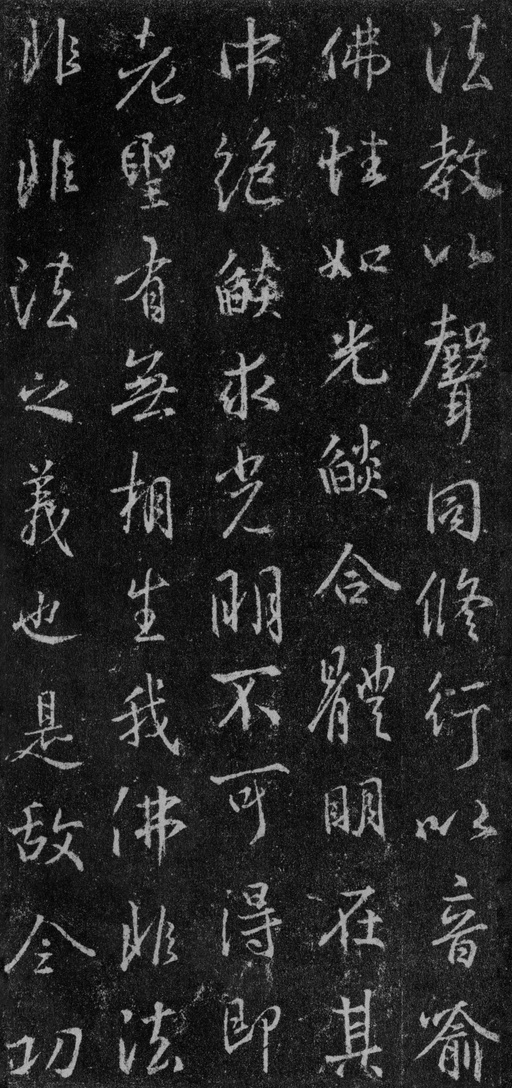 法教以聲同修行以音喻
佛性如光燄合體明在其
中絶燄求光明不可得即
老聖有無相生我佛非法
非非法之義也是故今叨